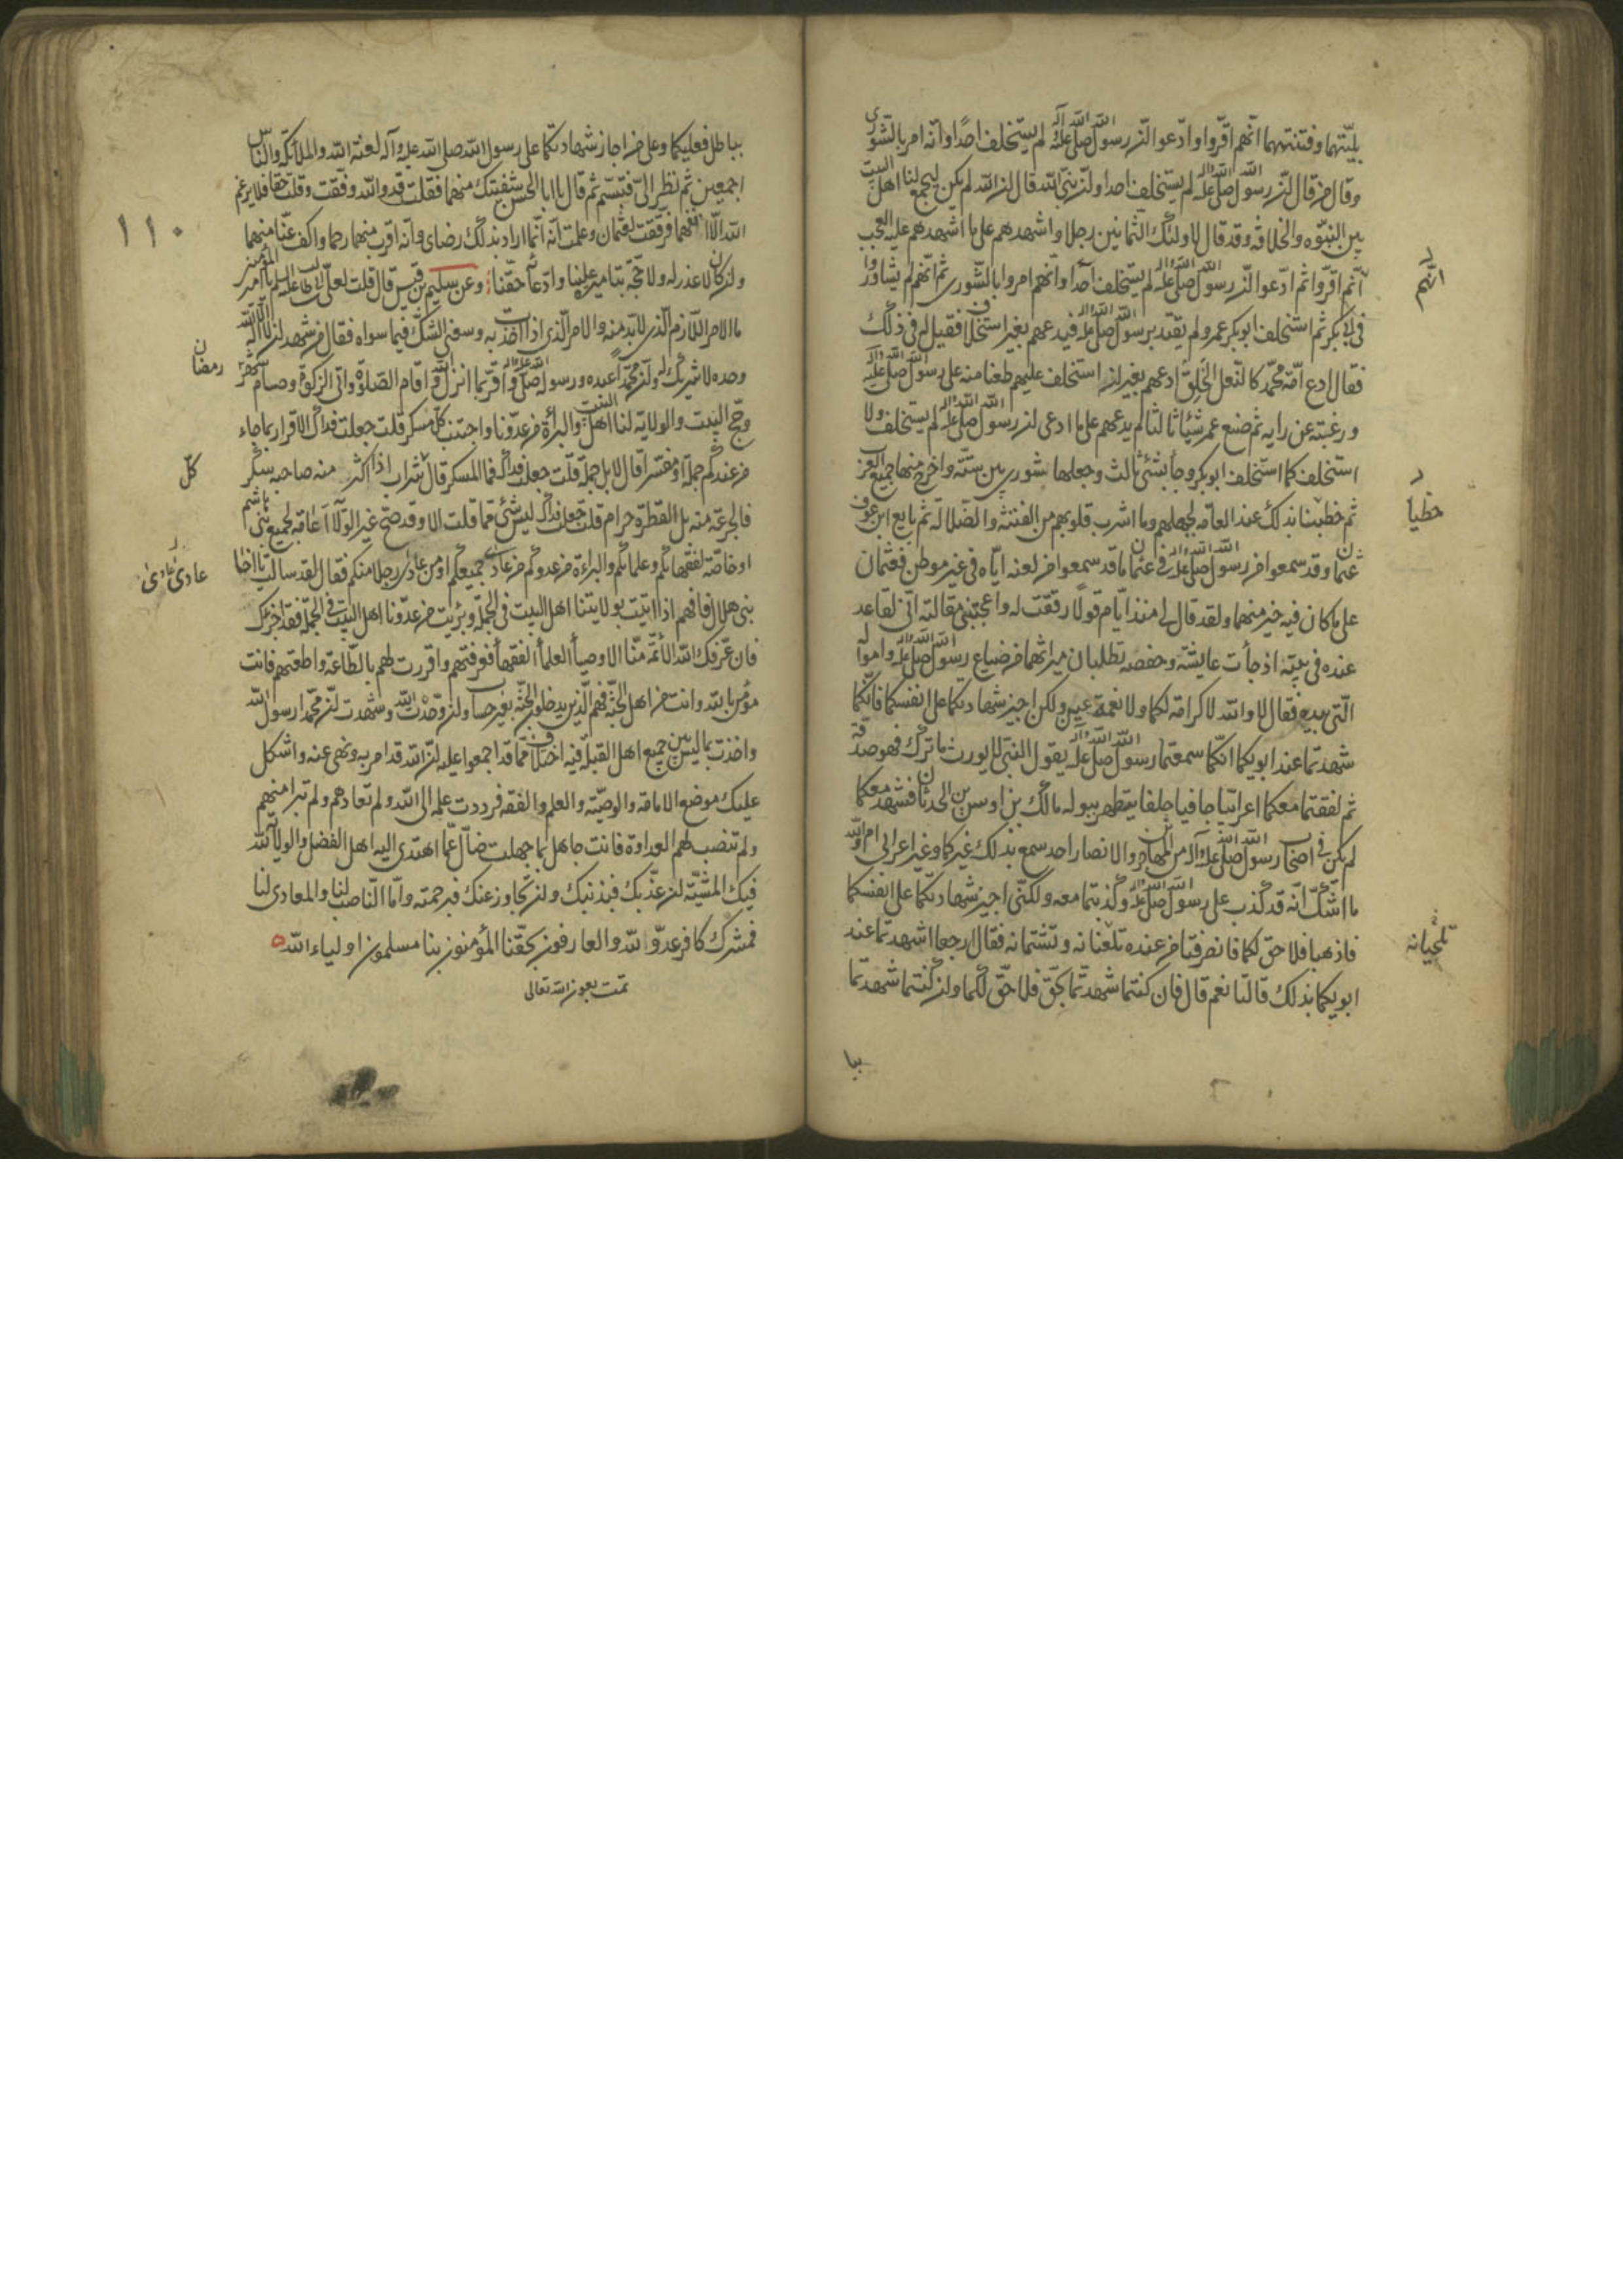 بليّتهما وفتنتهما انّهم اقرّوا وادّعوا انّ رسول الله صلى الله عليه وآله لم يستخلف احدًا وانّه امر بالشورى
وقال من قال انّ رسول الله صلى الله عليه وآله لم يستخلف احدا وانّ نبيّ الله قال ان الله لم يكن ليجمع لنا اهل البيت
بين النبوّه والخلافة وقد قال لاولئك الثمانين رجلا واشهدهم على ما اشهدهم عليه العجب
انّهم اقرّوا ثم ادّعوا ان رسول الله صلى الله عليه وآله لم يستخلف احدا وانّهم امروا بالشّورى ثم انّهم لم يشاوروا
في ابي بكر ثم استخلف ابو بكر عمر ولم يقتد برسول الله صلى الله عليه وآله فيدعهم بغير استخلاف فقيل له في ذلك
فقال ادع امّة محمّد كالنّعل الخلق ادعهم بغير ان استخلف عليهم طعنا منه على رسول الله صلى الله عليه وآله
ورغبته عن رايه ثم صنع عمر شيئا ثالثا لم يدعهم على ما ادعى ان رسول الله صلى الله عليه وآله لم يستخلف ولا
استخلف كما استخلف ابو بكر وجا بشئ ثالث وجعلها شورى بين ستّة واخرج منها جميع العرب
ثم خطبنا بذلك عند العامّه لجهلهم وما اشرب قلوبهم من الفتنة والضلالة ثم بايع ابن عوف
عثمان وقد سمعوا من رسول الله صلى الله عليه وآله في عثمان ما قد سمعوا من لعنه ايّاه في غير موطن فعثمان
على ما كان فيه خير منهما ولقد قال لي منذ ايّام قولًا رققت له واعجبتني مقالته انّي لقاعد
عنده في بيته اذ جأت عايشة وحفصه تطلبان ميراثهما من ضياع رسول الله صلى الله عليه وآله وامواله
الّتي بيده فقال لا والله لا كرامة لكما ولا نعمة عين ولكن اجيز شهادتكما على انفسكما فانّكما
شهدتما عند ابويكما انّكما سمعتما رسول الله صلى الله عليه وآله يقول النبيّ لا يورث ما ترك فهو صدقة
ثم لقنتما معكما اعرابيّا جافيا جلفا يتطهر ببوله مالك بن اوس بن الحدثان فشهد معكما
لم يكن في اصحاب رسول الله صلى الله عليه وآله من المهاجرين والانصار احد سمع بذلك غيركما وغير اعرابي ام والله
ما اشكّ انّه قد كذب على رسول الله صلى الله عليه وآله وكذبتما معه ولكنّي اجيز شهادتكما على انفسكما
فاذهبا فلا حق لكما فانصرفتا من عنده تلعنانه وتشتمانه فقال ارجعا اشهدتما عند
ابويكما بذلك قالتا نعم قال فان كنتما شهدتما بحقّ فلا حقّ لكما وان كنتما شهدتما
انّهم
تلحيانه
ببا
بباطل فعليكما وعلى من اجاز شهادتكما على رسول الله صلى الله عليه وآله لعنة الله والملائكة والناس
اجمعين ثم نظر الىّ فتبسّم ثم قال يا ابا الحسن شفيتك منهما فقلت قد والله وفّقت وقلت حقا فلا يرغم
الله الّا انفهما فرققت لعثمان وعلمت انّه انّما اراد بذلك رضاى وانّه اقرب منهما رحما واكف عنّا منهما
وان كان لا عذر له ولا حجّة بتاميره علينا وادّعائه حقّنا وعن سليم بن قيس قال قلت لعلي بن ابي طالب عليه السلم يا امير المؤمنين
ما الامر اللازم الذي لا بدّ منه والامر الذي اذا اخذت به وسعني الشك فيما سواه فقال من شهد ان لا اله الا الله
وحده لا شريك له وانّ محمّدًا عبده ورسوله صلى الله عليه وآله واقرّ بما انزل الله واقام الصلوة واتى الزكوة وصام شهر
وحجّ البيت والولاية لنا اهل البيت والبرأة من عدوّنا واجتنب كلّ مسكر قلت جعلت فداك الاقرار بما جاء
من عندكم جملة او مفسّرا قال لا بل جملة قلت جعلت فداك فما المسكر قال كل شراب اذا اكثر منه صاحبه سكر
فالجرعة منه بل القطرة حرام قلت جعلت فداك ليس شئ مما قلت الا وقد صحّ غير الولاء اعامّة لجميع بني هاشم
او خاصّة لفقهائكم وعلمائكم والبراءة من عدوكم من عادى جميعكم او من عادى رجلا منكم فقال لقد سالت يا اخا
بني هلال فافهم اذا اتيت بولايتنا اهل البيت في الجملة وبرئت من عدوّنا اهل البيت في الجملة فقد اجزءك
فان عرّفك الله الائمّة منّا الاوصيأ العلمأ الفقهأ فعرفتهم واقررت لهم بالطّاعة واطعتهم فانت
مؤمن بالله وانت من اهل الجنّة فهم الّذين يدخلون الجنّة بغير حساب وان وحّدت الله وشهدت انّ محمّدا رسول الله
واخذت بما ليس بين جميع اهل القبلة فيه اختلاف ممّا قد اجمعوا عليه انّ الله قد امر به ونهى عنه واشكل
عليك موضع الامامة والوصيّة والعلم والفقه فرددت علمه الى الله ولم تعادهم ولم تبرا منهم
ولم تنصب لهم العداوة فانت جاهل بما جهلت ضالّ عمّا اهتدى اليه اهل الفضل والولاية لله
فيك المشيّة ان عذّبك فبذنبك وان تجاوز عنك فبرحمته وامّا النّاصب لنا والمعادي لنا
فمشرك كافر عدوّ الله والعارفون بحقّنا المؤمنون بنا مسلمون اولياء الله
تمت بعون الله تعالى
١١٠
رمضان
كلّ
عادى